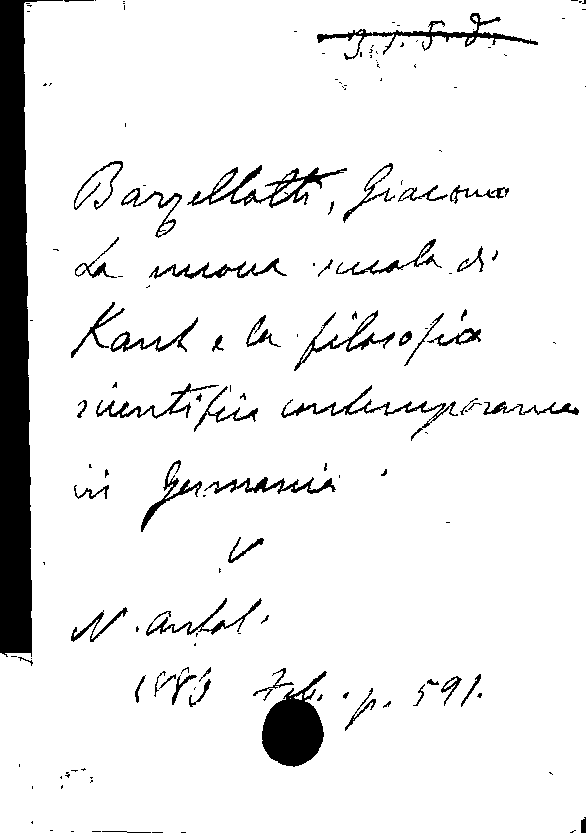 Barzellotti, Giacomo
La nuova scuola di
Kant e la filosofia
scientifica contemporanea
in Germania.
N. Antol.
Feb. p. 591.